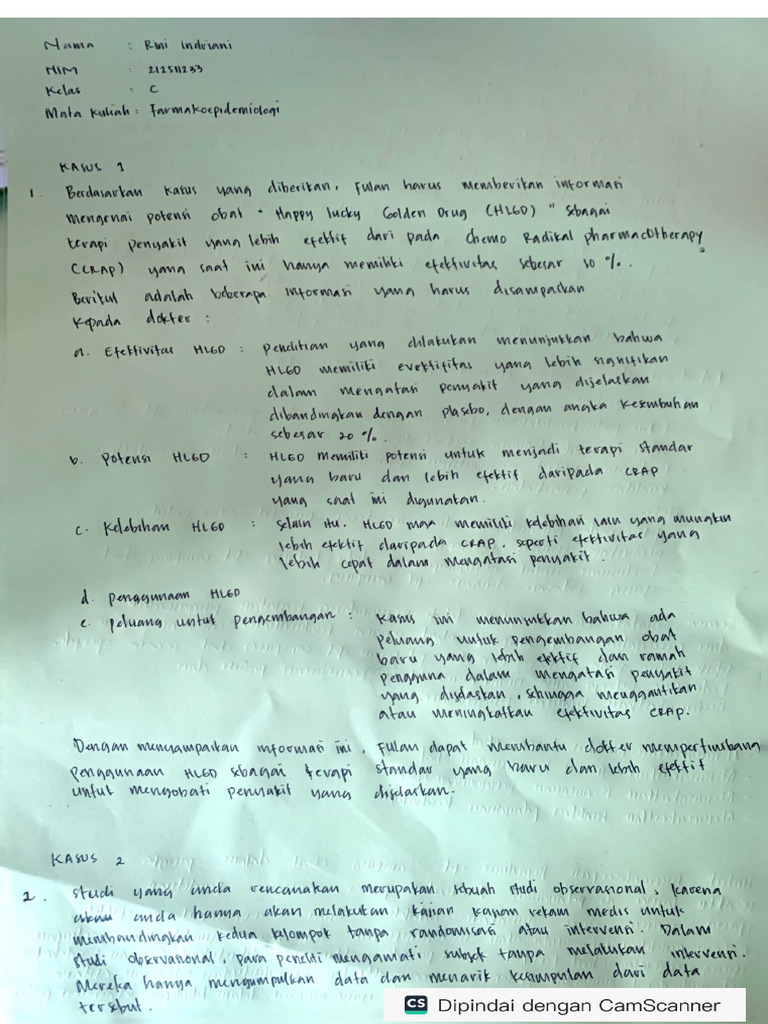 Nama : Rini Indriani
NIM : 212511233
Kelas : C
Mata kuliah : Farmakoepidemiologi
KASUS 1
1. Berdasarkan kasus yang diberikan, Fulan harus memberikan informasi
mengenai potensi obat "Happy lucky Golden Drug (HLGD)" sebagai
terapi penyakit yang lebih efektif dari pada Chemo Radikal pharmacotherapy
(CRAP) yang saat ini hanya memiliki efektivitas sebesar 10%.
Berikut adalah beberapa informasi yang harus disampaikan
kepada dokter :
a. Efektivitas HLGD : penelitian yang dilakukan menunjukkan bahwa
HLGD memiliki evektifitas yang lebih signifikan
dalam mengatasi penyakit yang dijelaskan
dibandingkan dengan plasebo, dengan angka kesembuhan
sebesar 20%.
b. Potensi HLGD : HLGD memiliki potensi untuk menjadi terapi standar
yang baru dan lebih efektif daripada CRAP
yang saat ini digunakan.
c. Kelebihan HLGD : selain itu, HLGD memiliki kelebihan lain yang mungkin
lebih efektif daripada CRAP, seperti efektivitas yang
lebih cepat dalam mengatasi penyakit.
d. penggunaan HLGD
e. peluang untuk pengembangan : Kasus ini menunjukkan bahwa ada
peluang untuk pengembangan obat
baru yang lebih efektif dan ramah
pengguna dalam mengatasi penyakit
yang dijelaskan, sehingga menggantikan
atau meningkatkan efektivitas CRAP.
Dengan menyampaikan informasi ini, Fulan dapat membantu dokter mempertimbang
penggunaan HLGD sebagai terapi standar yang baru dan lebih efektif
untuk mengobati penyakit yang dijelaskan.
KASUS 2
2. studi yang anda rencanakan merupakan sebuah studi observasional, karena
anda hanya akan melakukan kajian kajian rekam medis untuk
membandingkan kedua kelompok tanpa randomisasi atau intervensi. Dalam
studi observasional, para peneliti mengamati subjek tanpa melakukan intervensi.
Mereka hanya mengumpulkan data dan menarik kesimpulan dari data
tersebut.
CS Dipindai dengan CamScanner